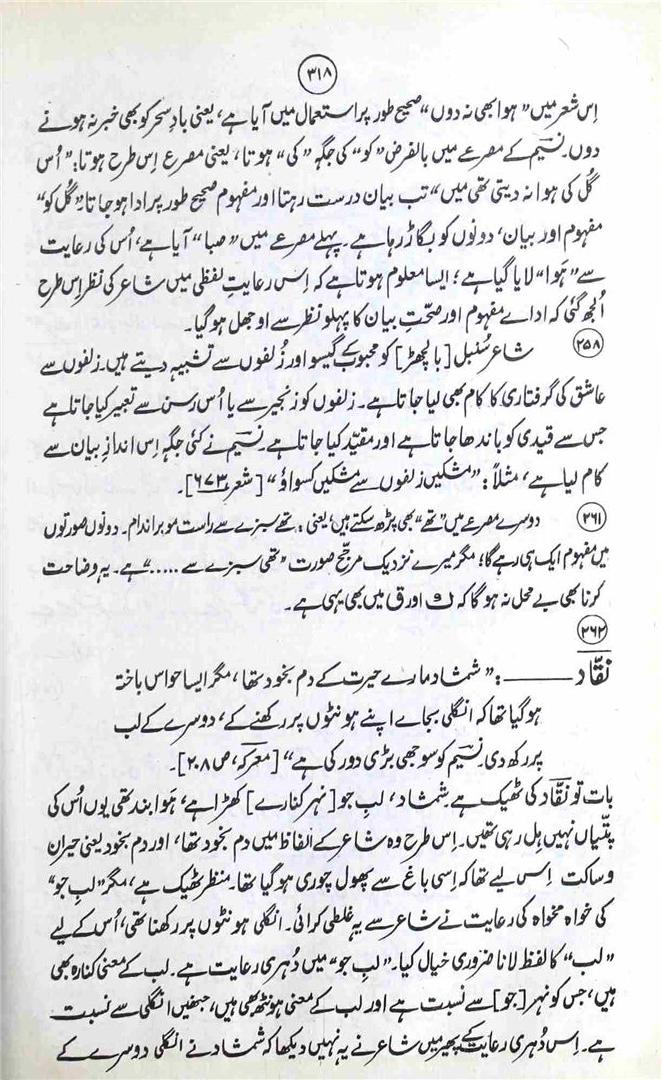 ۳۱۸
اِس شعر میں ”ہوا بھی نہ دوں“ صحیح طور پر استعمال میں آیا ہے، یعنی بادِ سحر کو بھی خبر نہ ہونے
دوں۔ نسیم کے مصرعے میں بالفرض ”کو“ کی جگہ ”کی“ ہوتا، یعنی مصرع اِس طرح ہوتا: ”اُس
گُل کی ہوا نہ دیتی تھی میں“ تب بیان درست رہتا اور مفہوم صحیح طور پر ادا ہو جاتا: ”گُل کو“
مفہوم اور بیان، دونوں کو بگاڑ رہا ہے۔ پہلے مصرعے میں ”صبا“ آیا ہے، اُس کی رعایت
سے ”ہَوا“ لایا گیا ہے؛ ایسا معلوم ہوتا ہے کہ اِس رعایتِ لفظی میں شاعر کی نظر اِس طرح
اُلجھ گئی کہ اداے مفہوم اور صحّتِ بیان کا پہلو نظر سے اوجھل ہو گیا۔
۲۵۸ شاعر سُنبل [بالچھڑ] کو محبوب کے گیسو اور زُلفوں سے تشبیہ دیتے ہیں۔ زلفوں سے
عاشق کی گرفتاری کا کام بھی لیا جاتا ہے۔ زلفوں کو زنجیر سے یا اُس رسن سے تعبیر کیا جاتا ہے
جس سے قیدی کو باندھا جاتا ہے اور مقیّد کیا جاتا ہے۔ نسیم نے کئی جگہ اِس اندازِ بیان سے
کام لیا ہے، مثلاً: ”مشکیں زلفوں سے مشکیں کسواؤ“ [شعر ۶۷۳]۔
۲۶۱ دوسرے مصرعے میں ”تھے“ بھی پڑھ سکتے ہیں، یعنی: تھے سبزے سے راست مو بر اندام۔ دونوں صورتوں
میں مفہوم ایک ہی رہے گا؛ مگر میرے نزدیک مرجّح صورت ”تھی سبزے سے .....“ ہے۔ یہ وضاحت
کرنا بھی بے محل نہ ہوگا کہ ک اور ق میں بھی یہی ہے۔
۲۶۲
نقّاد ـــــــ: ”شمشاد مارے حیرت کے دم بخود تھا، مگر ایسا حواس باختہ
ہو گیا تھا کہ انگلی بجاے اپنے ہونٹوں پر رکھنے کے، دوسرے کے لب
پر رکھ دی۔ نسیم کو سوجھی بڑی دور کی ہے“ [معرکہ، ص ۲۰۸]۔
بات تو نقّاد کی ٹھیک ہے شمشاد، لبِ جو [نہر کنارے] کھڑا ہے، ہَوا بند تھی یوں اُس کی
پتّیاں نہیں ہِل رہی تھیں۔ اِس طرح وہ شاعر کے الفاظ میں دم بخود تھا، اور دم بخود یعنی حیران
و ساکت اِس لیے تھا کہ اِسی باغ سے پھول چوری ہو گیا تھا۔ منظر ٹھیک ہے، مگر ”لبِ جو“
کی خواہ مخواہ کی رعایت نے شاعر سے یہ غلطی کرائی۔ انگلی ہونٹوں پر رکھنا تھی، اُس کے لیے
”لب“ کا لفظ لانا ضروری خیال کیا۔ ”لبِ جو“ میں دُہری رعایت ہے۔ لب کے معنی کنارہ بھی
ہیں، جس کو نہر [جو] سے نسبت ہے اور لب کے معنی ہونٹھ بھی ہیں، جنھیں انگلی سے نسبت
ہے۔ اِس دُہری رعایت کے پھیر میں شاعر نے یہ نہیں دیکھا کہ شمشاد نے انگلی دوسرے کے